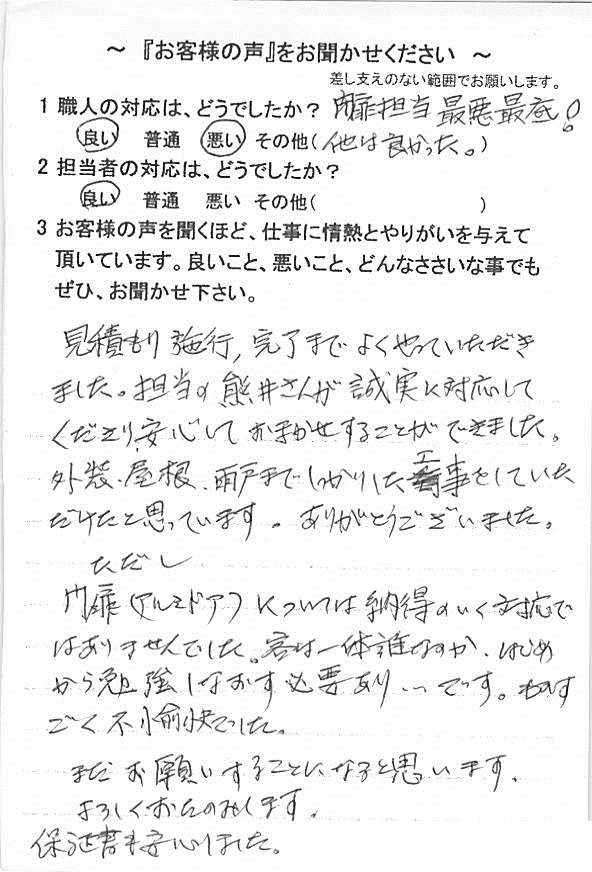 ～ 『お客様の声』をお聞かせください ～
差し支えのない範囲でお願いします。
1 職人の対応は、どうでしたか？ 門扉担当 最悪最底！
良い 普通 悪い その他（他は良かった。）
2 担当者の対応は、どうでしたか？
良い 普通 悪い その他（ ）
3 お客様の声を聞くほど、仕事に情熱とやりがいを与えて
頂いています。良いこと、悪いこと、どんなささいな事でも
ぜひ、お聞かせ下さい。
見積もり 施行, 完了まで よくやっていただき
ました。担当の 熊井さんが 誠実に対応して
くださり、安心して おまかせすることが できました。
外装、屋根、雨戸まで しっかりした 工事をしていた
だけたと思っています。ありがとうございました。
ただし
門扉（アルミドア）については 納得のいく対応で
はありませんでした。客は一体誰なのか、はじめ
から勉強しなおす必要あり…です。ものす
ごく不愉快でした。
またお願いすることになると思います。
よろしくおたのみします。
保証書も安心しました。